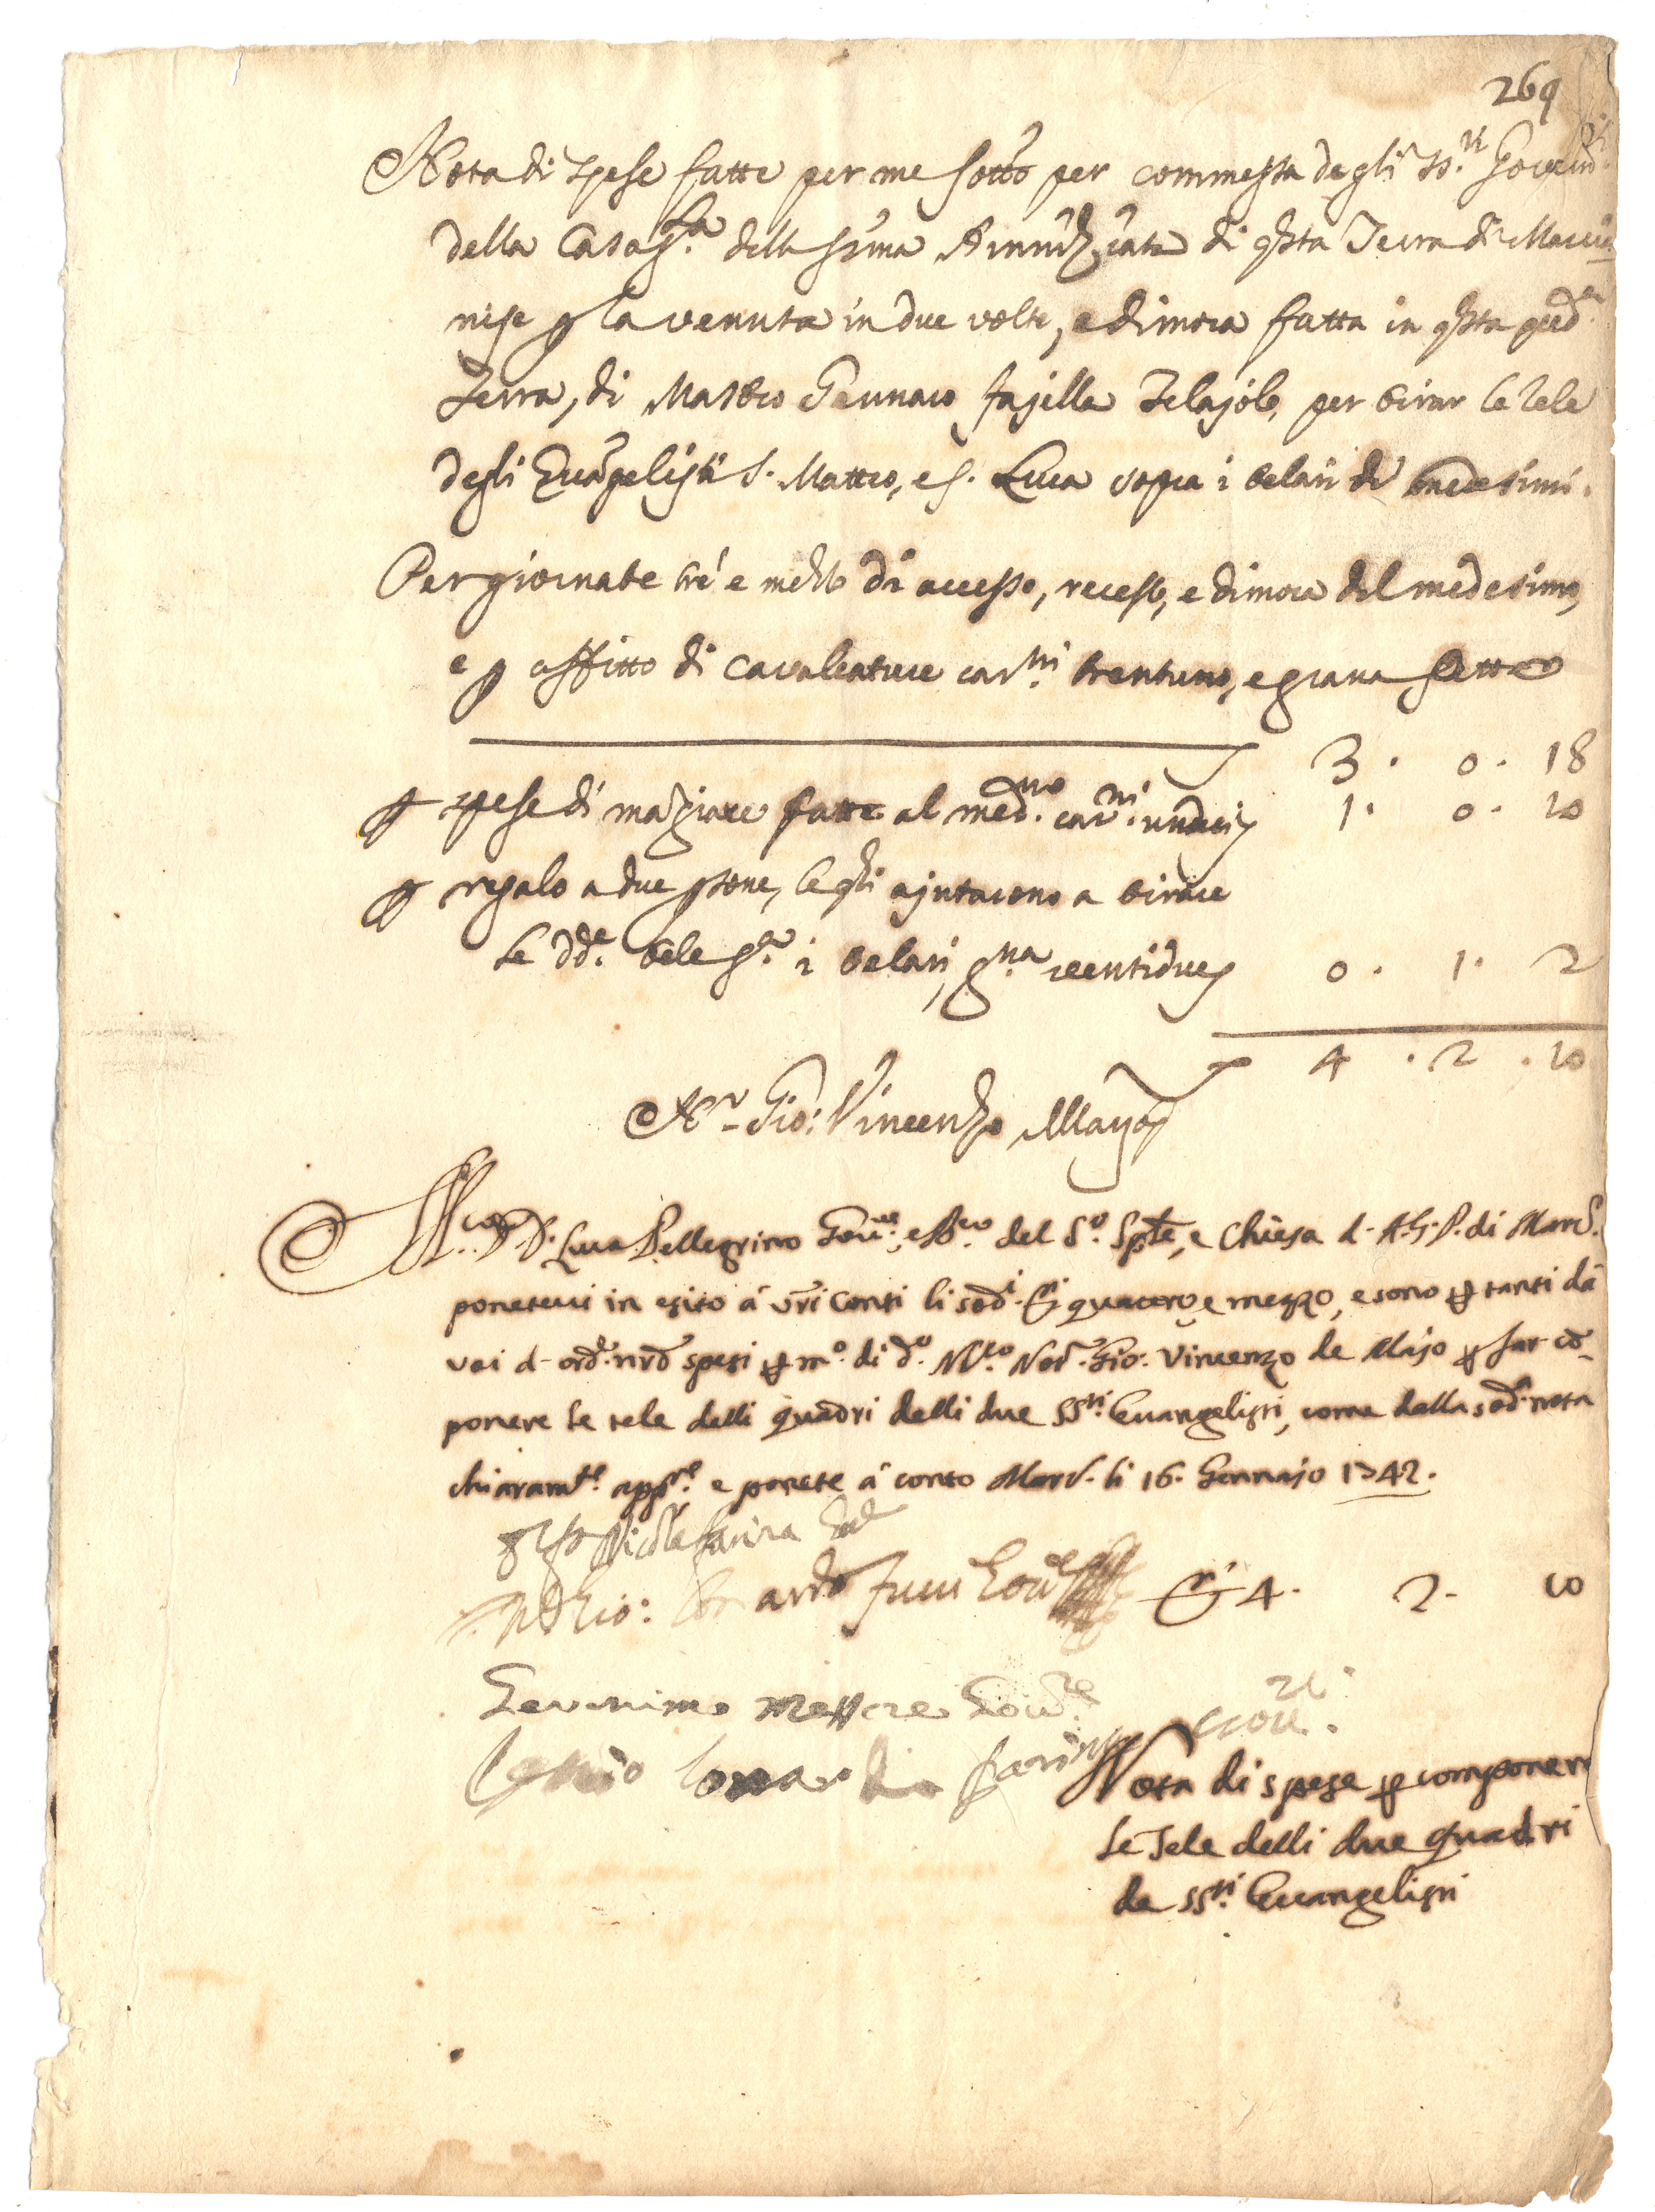 269
Nota di spese fatte per me sotto per commessa degli SS.ri Govern.ri
della Casa S.ta della SS.ma Annunziata di qsta Terra di Marcia
nise p la venuta in due volte, e dimora fatta in qsta pred.ta
Terra, di Mastro Gennaro Telajolo, per tirar le tele
degli Evãgelisti S. Matteo, e S. Luca sopra i telari di medesimi.
Per giornate trè e mezzo di accesso, recesso, e dimora del medesimo,
e p affitto di cavalcature car.ni trentuno, e grana otto
3. 0. 18
p spese di mãgiare fatte al med.mo car.ni undeci 1. 0. 10
p regalo a due psone, le qli ajutarono a tirare
le dd.e tele s.a i telari, g.na ventidue 0. 1. 2
4. 2. 10
N.r Gio: Vincenzo Majo
M.co D. Luca Pellegrino Gov.re, e del S.o Spte, e Chiesa d. A.G.P. di Marc.
ponetevi in esito à vri conti li sod.i quattro e mezzo, e sono p tanti da
voi d. ord. nro spesi p m.o di d.o M.co Not. Gio: Vincenzo de Majo p far cõ-
ponere le tele delli quadri delli due SS.ti Evangelisti, come dalla sod.a nota
chiaram.te app.re e ponete à conto Marc. li 16. Gennajo 1742.
Nicola Farina
Gio: Gov.re 4. 2. 10
Geronimo Messore Gov.re
Lonardo Farina Gov.re
Nota di spese p componere
le Tele delli due quadri
de SS.ti Evangelisti